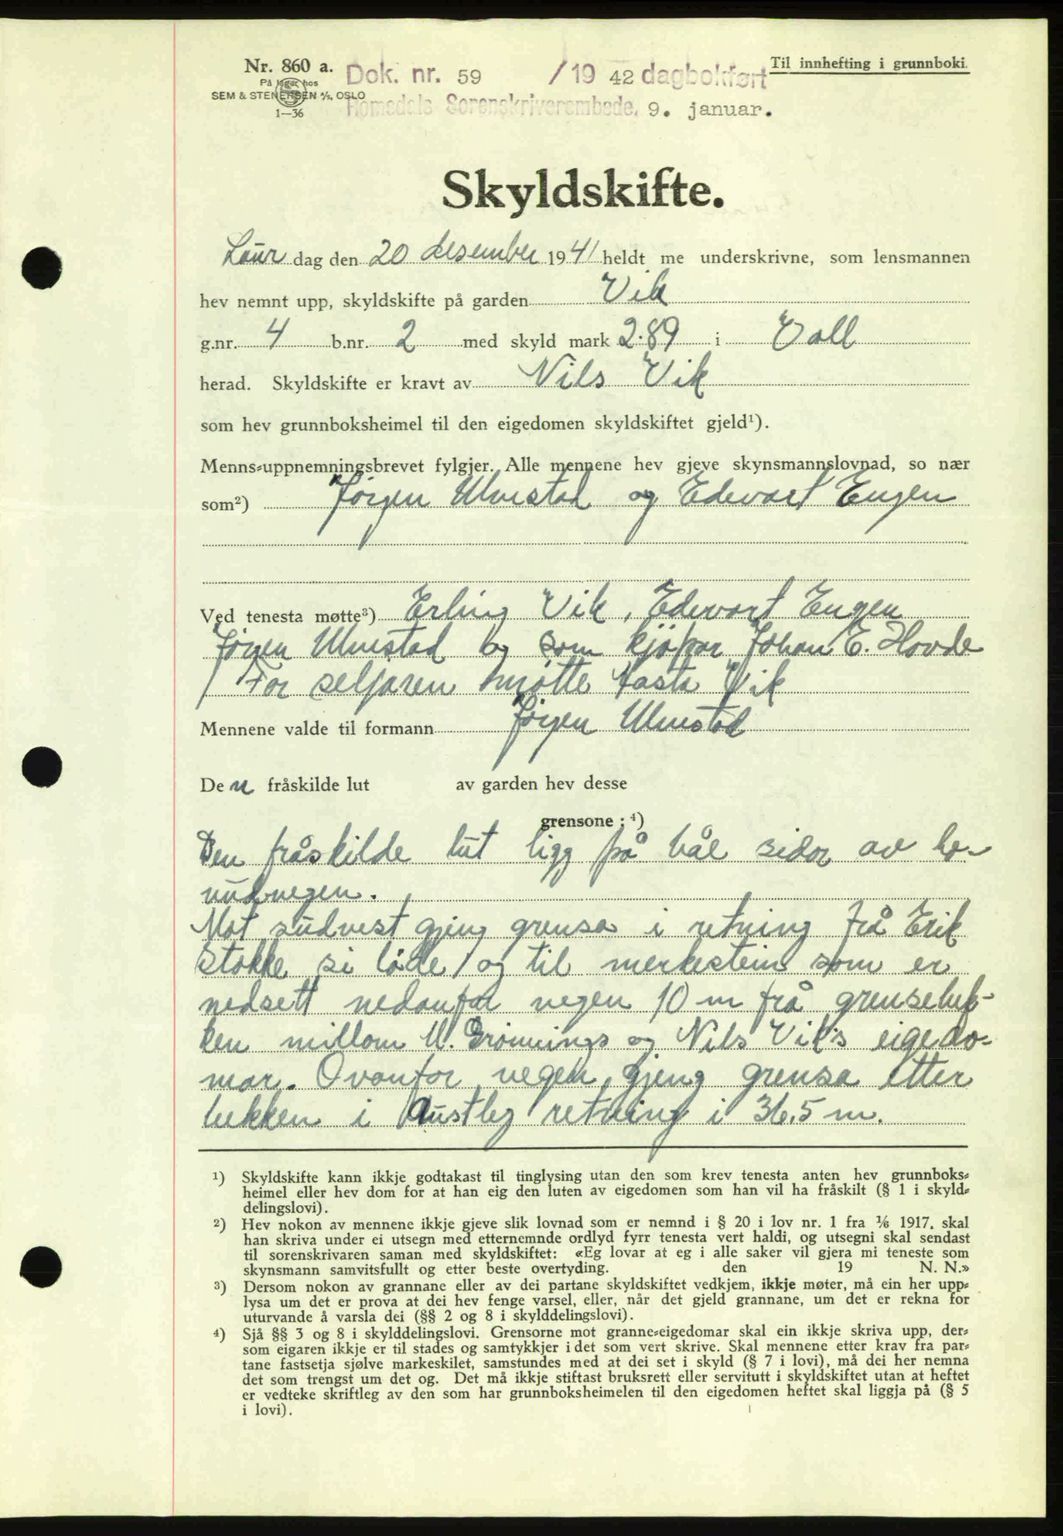 Nr. 860 a.
På lager hos
SEM & STENERSEN A/S, OSLO
1—36
Dok. nr. 59 /19 42 dagbokført
Romsdals Sorenskriverembede, 9. januar.
Til innhefting i grunnboki.
Skyldskifte.
Laur dag den 20 desember 1941 heldt me underskrivne, som lensmannen
hev nemnt upp, skyldskifte på garden Vik
g.nr. 4 b.nr. 2 med skyld mark 2.89 i Voll
herad. Skyldskifte er kravt av Nils Vik
som hev grunnboksheimel til den eigedomen skyldskiftet gjeld¹).
Menns-uppnemningsbrevet fylgjer. Alle mennene hev gjeve skynsmannslovnad, so nær
som²) Jørgen Ulvestad og Edevart Engen
Ved tenesta møtte³) Erling Vik, Edevart Engen
Jørgen Ulvestad og som kjøpar Johan E. Hovde
For seljaren møtte Kasta Vik
Mennene valde til formann Jørgen Ulvestad
Den fråskilde lut av garden hev desse
grensone : ⁴)
Den fråskilde lut ligg på båe sidor av ho-
vudvegen.
Mot sudvest gjeng grensa i retning frå Erik
Stokke si løde og til merkestein som er
nedsett nedanfor vegen 10 m frå grensebek-
ken millom U. Grønnings og Nils Vik's eigedo-
mar. Ovanfor vegen gjeng grensa etter
bekken i austleg retning i 36,5 m.
¹) Skyldskifte kann ikkje godtakast til tinglysing utan den som krev tenesta anten hev grunnboks-
heimel eller hev dom for at han eig den luten av eigedomen som han vil ha fråskilt (§ 1 i skyld-
delingslovi).
²) Hev nokon av mennene ikkje gjeve slik lovnad som er nemnd i § 20 i lov nr. 1 fra ⅙ 1917, skal
han skriva under ei utsegn med etternemnde ordlyd fyrr tenesta vert haldi, og utsegni skal sendast
til sorenskrivaren saman med skyldskiftet: «Eg lovar at eg i alle saker vil gjera mi teneste som
skynsmann samvitsfullt og etter beste overtyding. den 19 N. N.»
³) Dersom nokon av grannane eller av dei partane skyldskiftet vedkjem, ikkje møter, må ein her upp-
lysa um det er prova at dei hev fenge varsel, eller, når det gjeld grannane, um det er rekna for
uturvande å varsla dei (§§ 2 og 8 i skylddelingslovi).
⁴) Sjå §§ 3 og 8 i skylddelingslovi. Grensorne mot granne-eigedomar skal ein ikkje skriva upp, der-
som eigaren ikkje er til stades og samtykkjer i det som vert skrive. Skal mennene etter krav fra par-
tane fastsetja sjølve markeskilet, samstundes med at dei set i skyld (§ 7 i lovi), må dei her nemna
det som trengst um det og. Det må ikkje stiftast bruksrett eller servitutt i skyldskiftet utan at heftet
er vedteke skriftleg av den som har grunnboksheimelen til den eigedomen heftet skal liggja på (§ 5
i lovi).